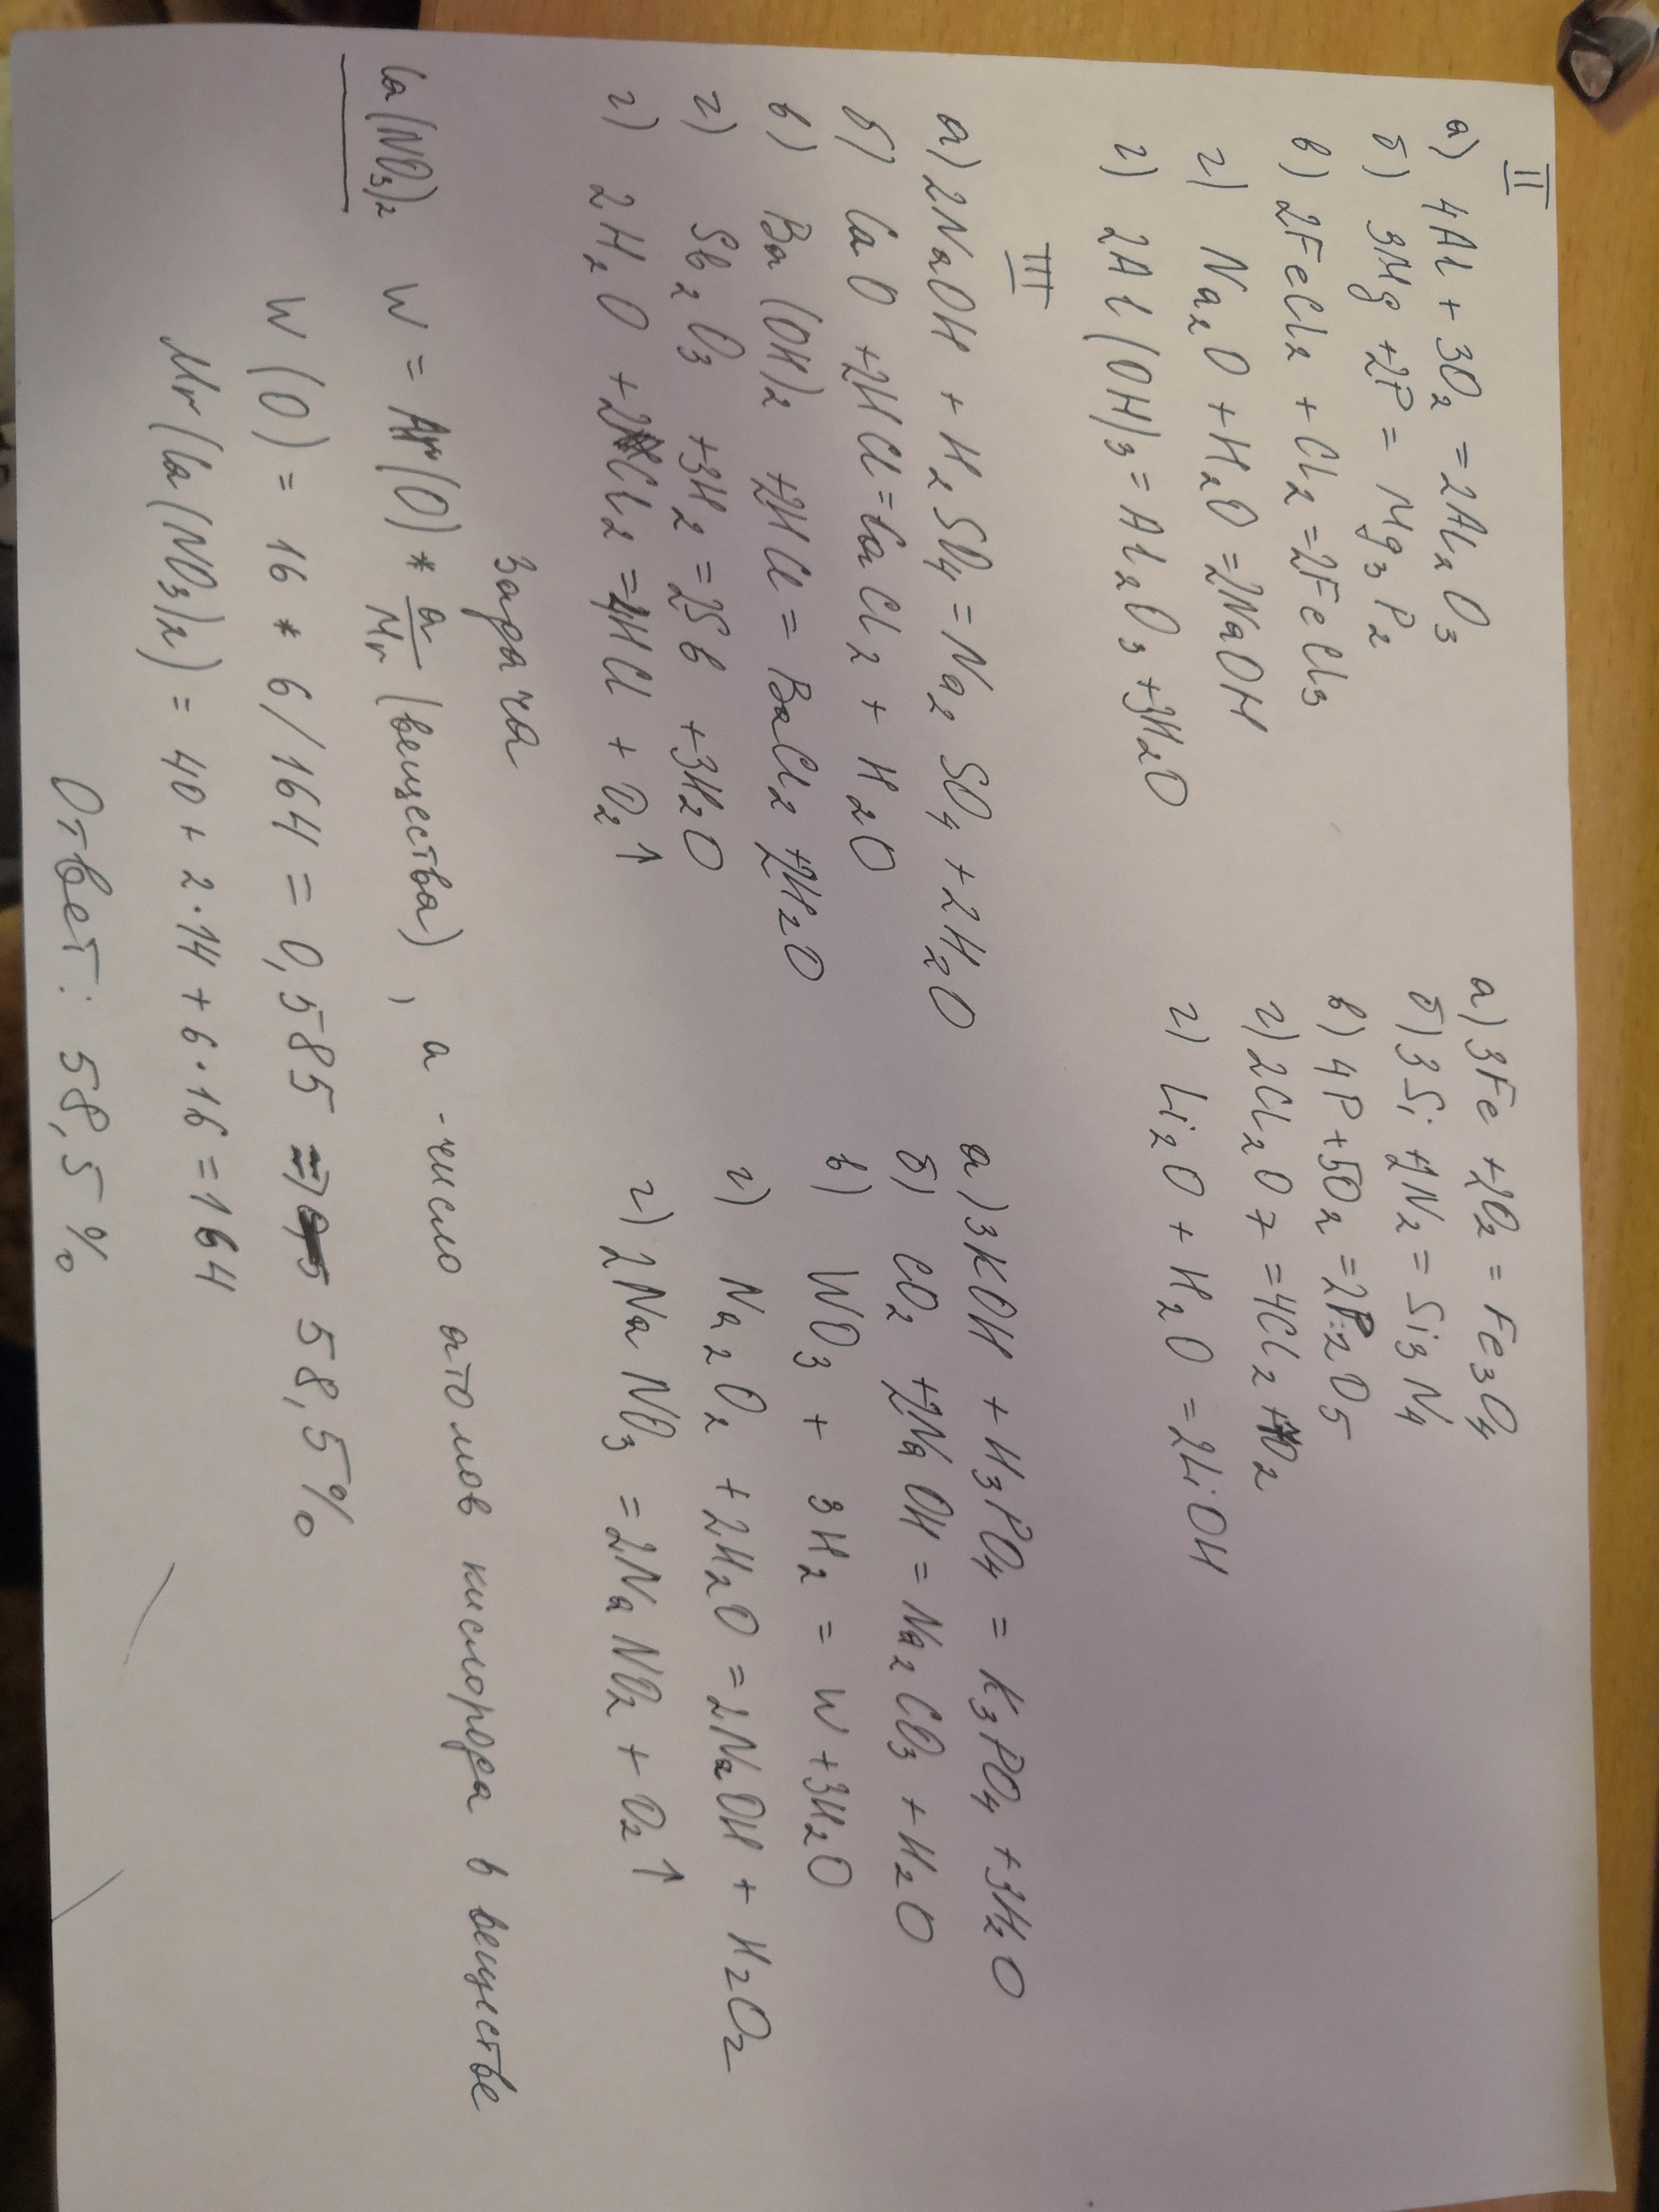 II
а) 4Al + 3O2 = 2Al2O3
б) 3Mg + 2P = Mg3P2
в) 2FeCl2 + Cl2 = 2FeCl3
г) Na2O + H2O = 2NaOH
г) 2Al(OH)3 = Al2O3 + 3H2O
а) 3Fe + 2O2 = Fe3O4
б) 3Si + 2N2 = Si3N4
в) 4P + 5O2 = 2P2O5
г) 2Cl2O7 = 4Cl2 + O2
г) Li2O + H2O = 2LiOH
III
а) 2NaOH + H2SO4 = Na2SO4 + 2H2O
б) CaO + 2HCl = CaCl2 + H2O
в) Ba(OH)2 + 2HCl = BaCl2 + 2H2O
г) Sb2O3 + 3H2 = 2Sb + 3H2O
г) 2H2O + 2Cl2 = 4HCl + O2↑
а) 3KOH + H3PO4 = K3PO4 + 3H2O
б) CO2 + 2NaOH = Na2CO3 + H2O
в) WO3 + 3H2 = W + 3H2O
г) Na2O2 + 2H2O = 2NaOH + H2O2
г) 2NaNO3 = 2NaNO2 + O2↑
Задача
Ca(NO3)2 W = Ar(O) * a/Mr (вещества), a - число атомов кислорода в веществе
W(O) = 16 * 6/164 = 0,585 = 58,5%
Mr(Ca(NO3)2) = 40 + 2·14 + 6·16 = 164
Ответ: 58,5%